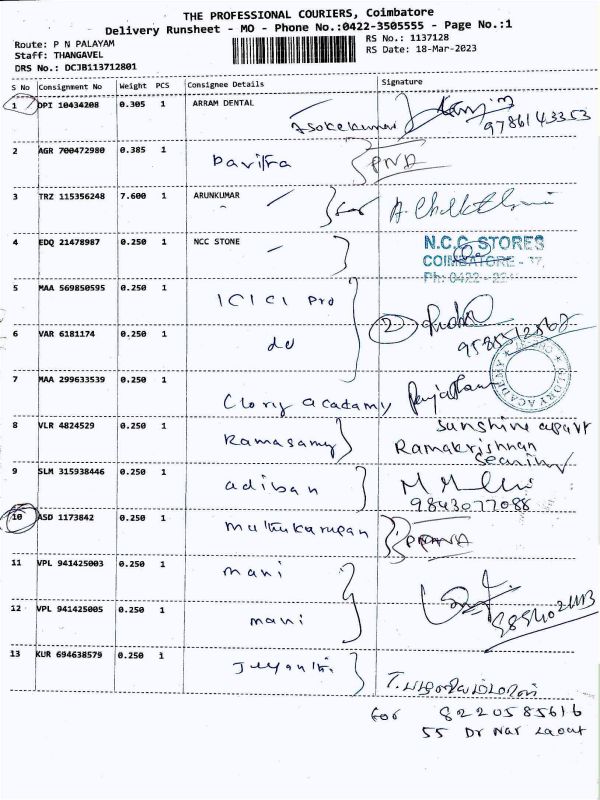 THE PROFESSIONAL COURIERS, Coimbatore
Delivery Runsheet - MO - Phone No.:0422-3505555 - Page No.:1
Route: P N PALAYAM
RS No.: 1137128
Staff: THANGAVEL
RS Date: 18-Mar-2023
DRS No.: DCJB113712801
S No Consignment No Weight PCS Consignee Details Signature
1 DPI 10434208 0.305 1 ARRAM DENTAL
Asokekumar 9786143353
2 AGR 700472980 0.385 1 Pavitra PNA
3 TRZ 115356248 7.600 1 ARUNKUMAR for
4 EDQ 21478987 0.250 1 NCC STONE N.C.C. STORES
COIMBATORE - 37,
Ph: 0422 -
5 MAA 569850595 0.250 1 ICICI Pro
6 VAR 6181174 0.250 1 do 2
7 MAA 299633539 0.250 1 Clory acadamy
GLORY ACADEMY
8 VLR 4824529 0.250 1 Ramasamy Sunshine apart
Ramakrishnan
9 SLM 315938446 0.250 1 adiban
9843077088
10 ASD 1173842 0.250 1 muthukarupan
11 VPL 941425003 0.250 1 mani
12 VPL 941425005 0.250 1 mani
13 KUR 694638579 0.250 1
for 8220585616
55 Dr Nar Laout